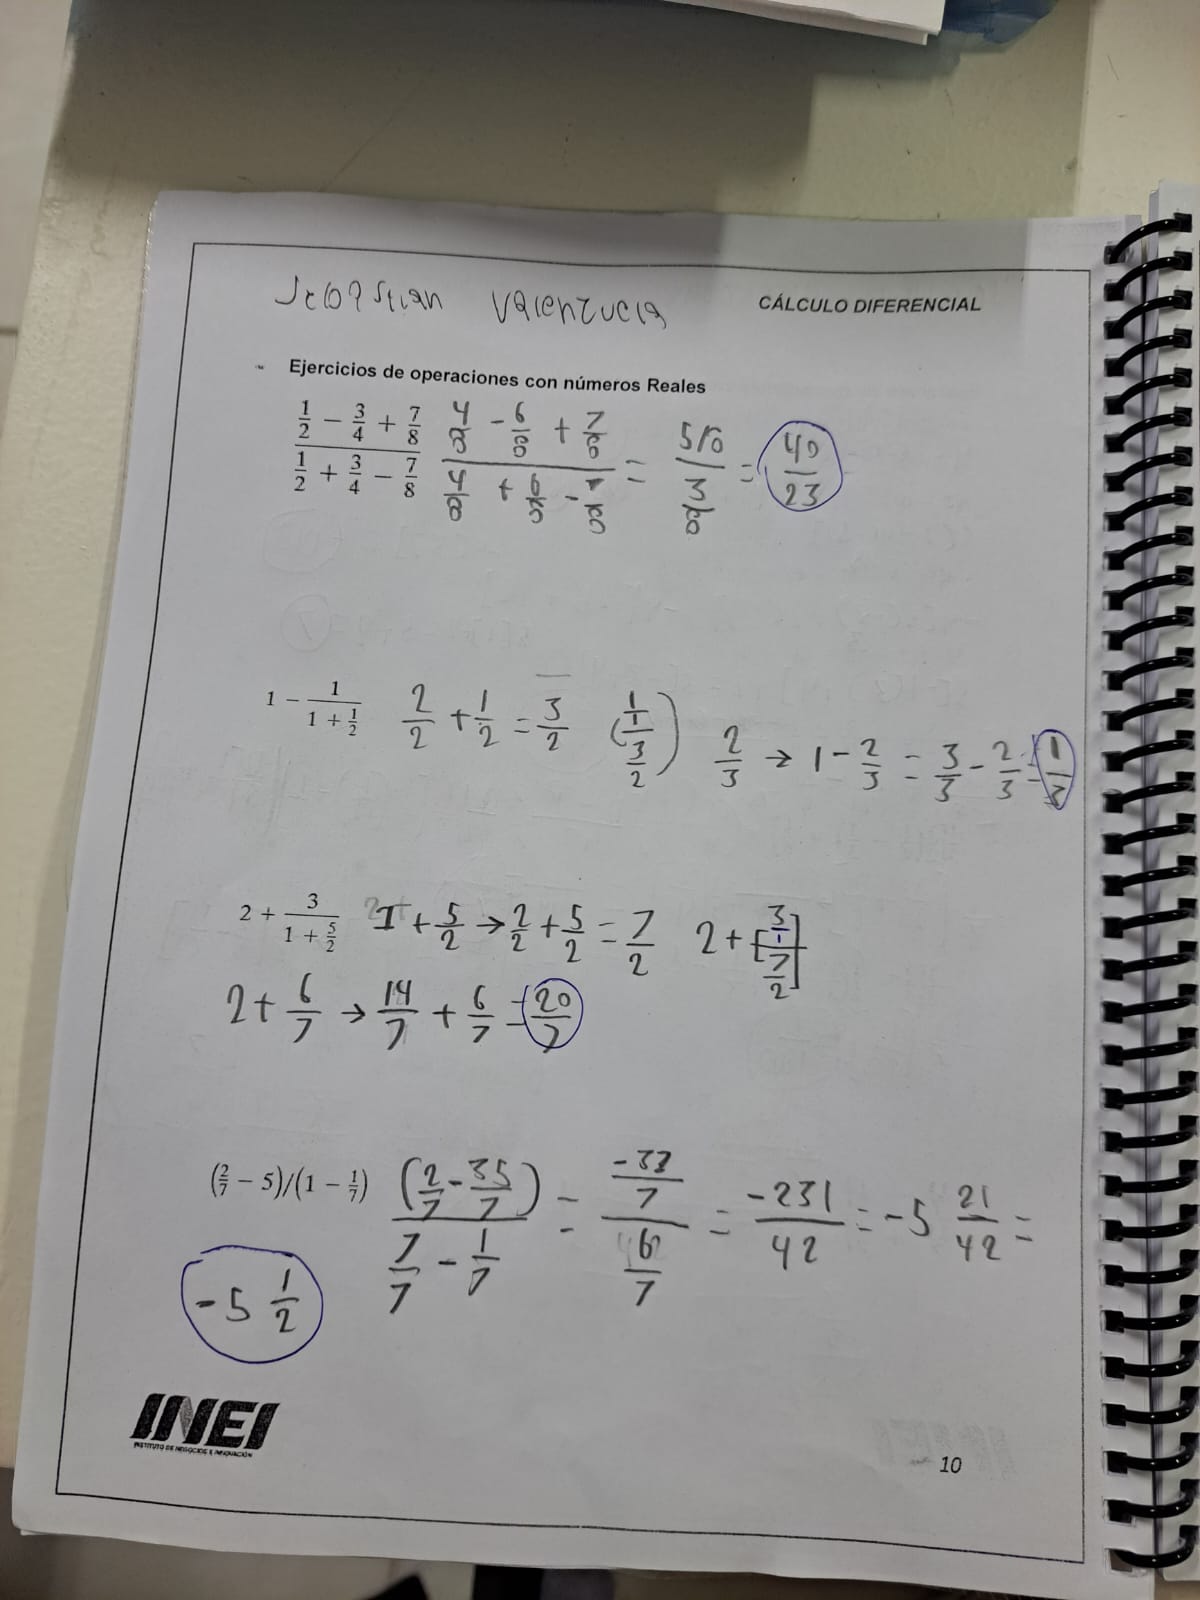 Sebastian Valenzuela
CÁLCULO DIFERENCIAL
Ejercicios de operaciones con números Reales
(1/2 − 3/4 + 7/8)/(1/2 + 3/4 − 7/8) (4/8 − 6/8 + 7/8)/(4/8 + 6/8 − 7/8) = (5/8)/(3/8) = 40/23
1 − 1/(1 + 1/2) 2/2 + 1/2 = 3/2 ((1/1)/(3/2)) 2/3 → 1 − 2/3 = 3/3 − 2/3 = 1/3
2 + 3/(1 + 5/2) 1 + 5/2 → 2/2 + 5/2 = 7/2 2 + [(3/1)/(7/2)]
2 + 6/7 → 14/7 + 6/7 = 20/7
(2/7 − 5)/(1 − 1/7) (2/7 − 35/7)/(7/7 − 1/7) = (−33/7)/(6/7) = −231/42 = −5 21/42 =
−5 1/2
INEI
INSTITUTO DE NEGOCIOS E INNOVACIÓN
10